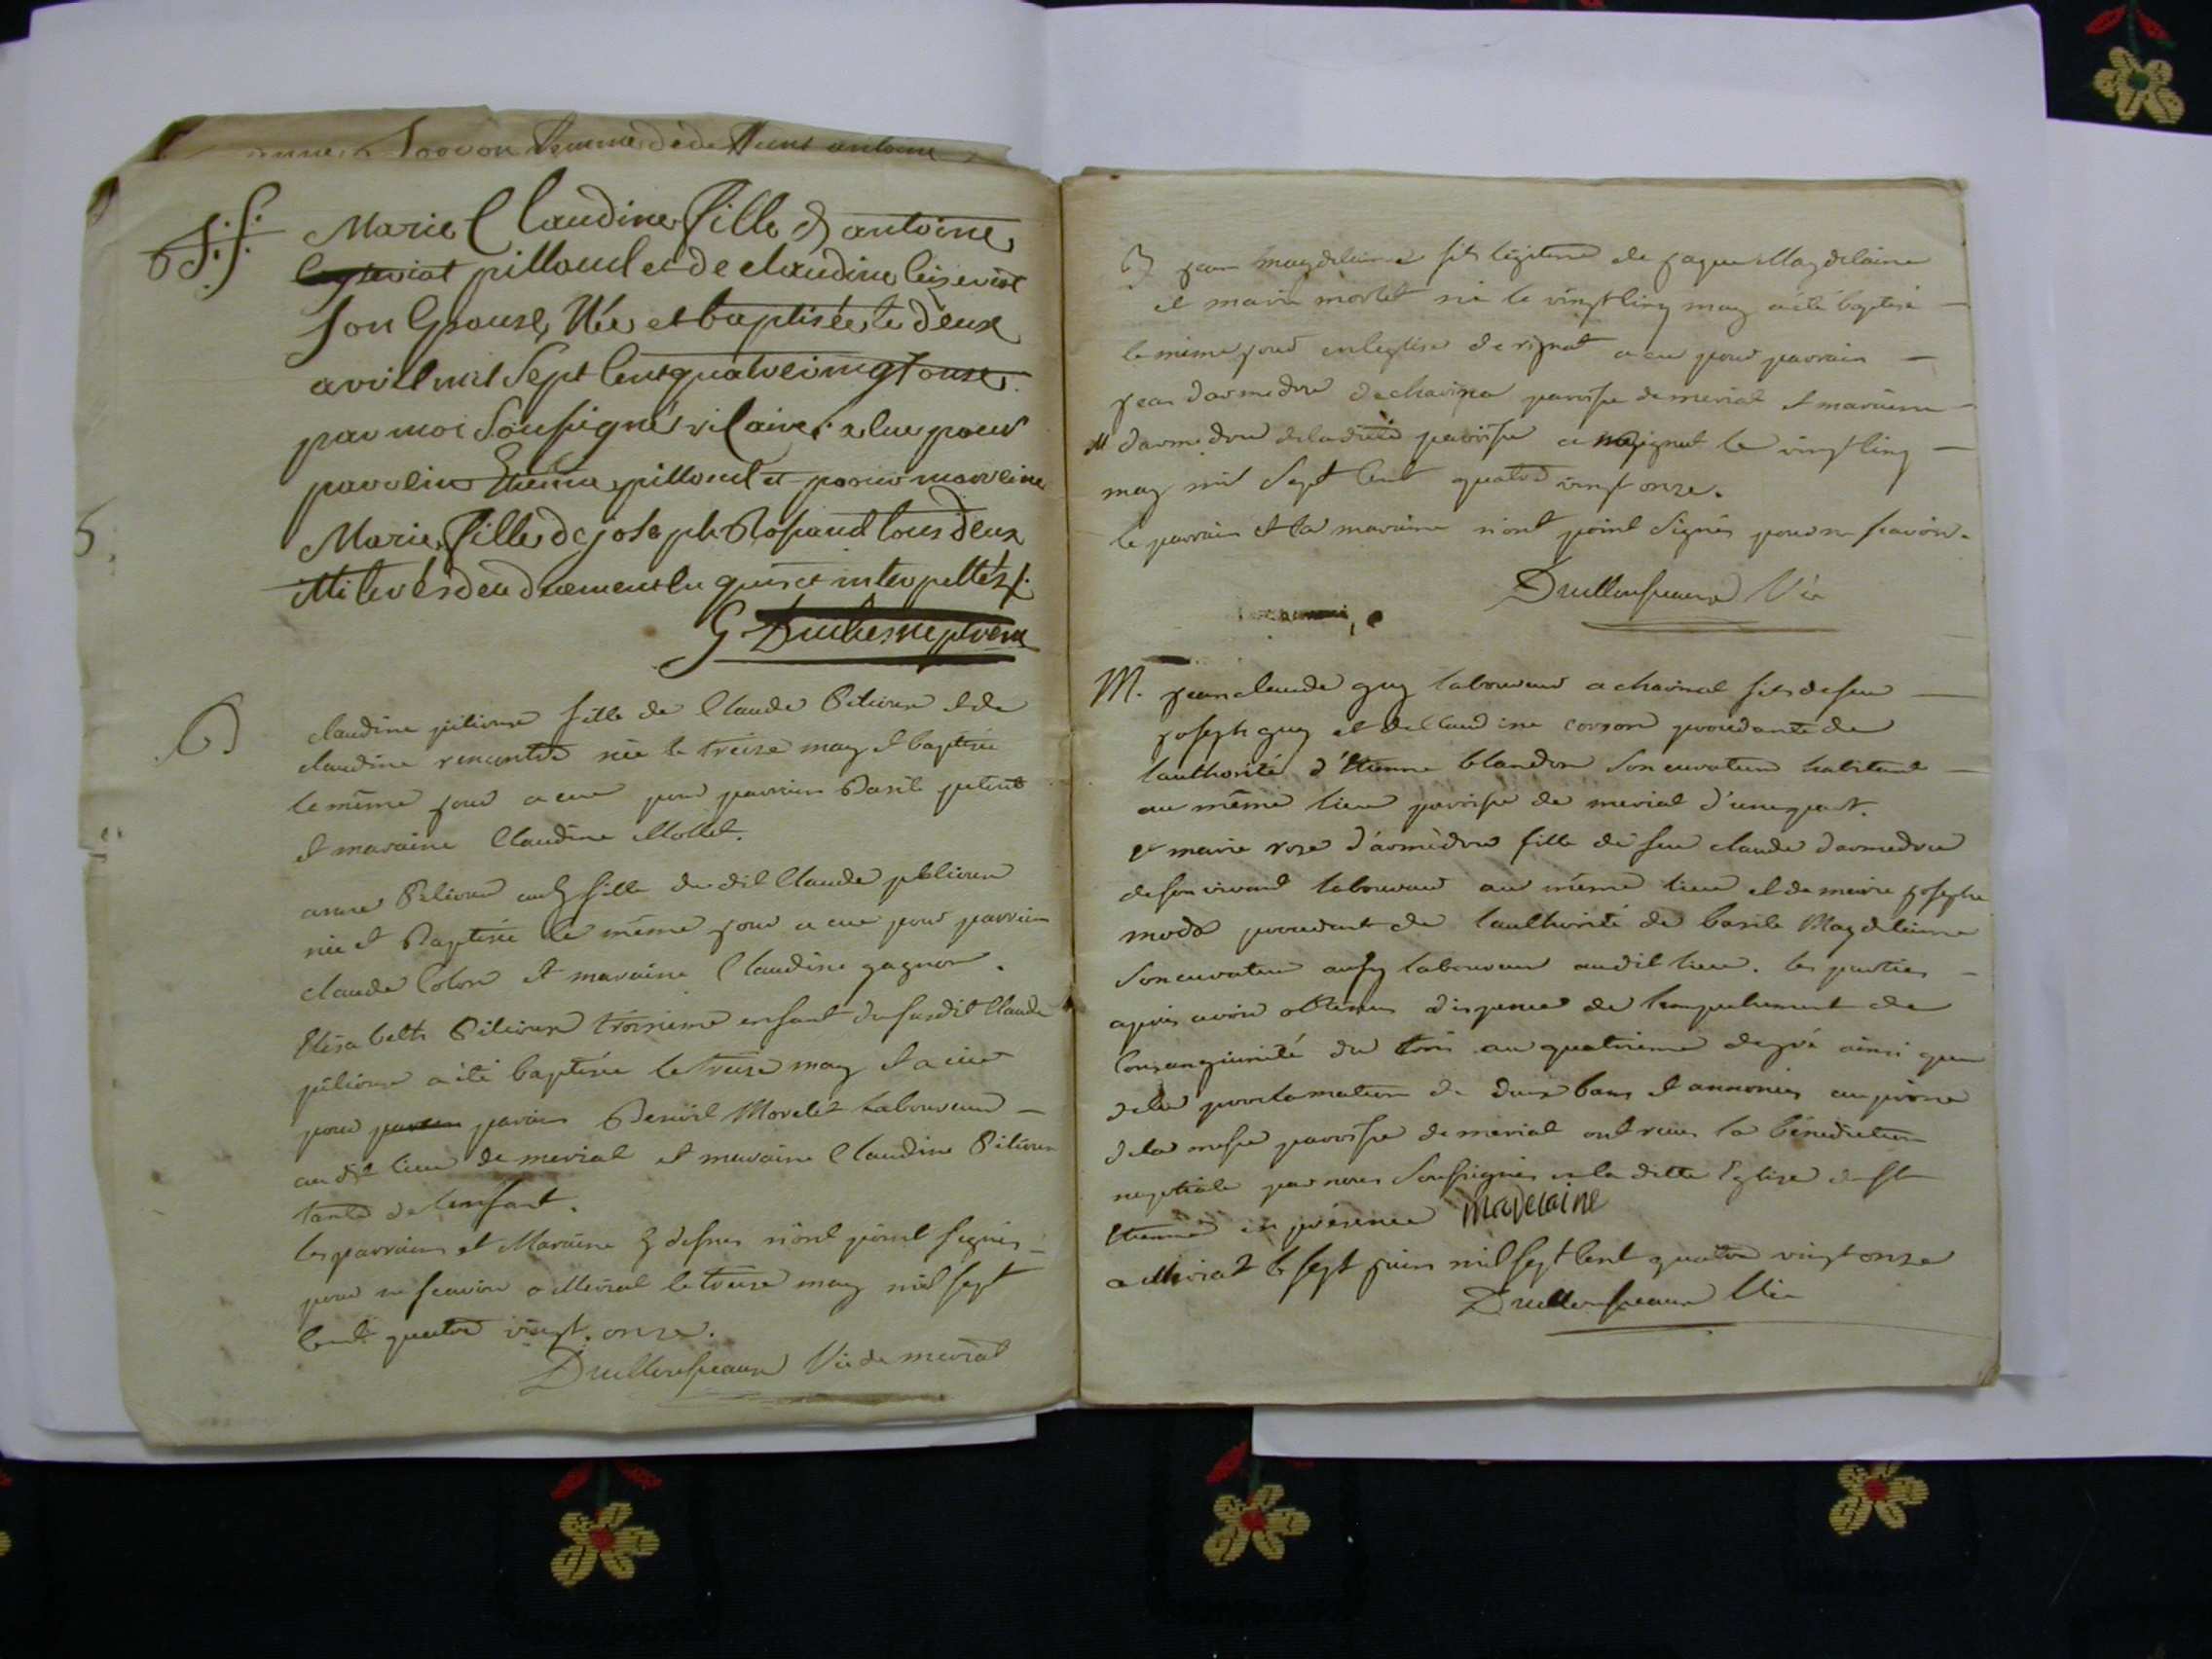 femme de
Marie Claudine fille d antoine
pilloud et de claudine
son Epouse, Née et baptisée le deux
avril mil Sept Cent quatre vingt onze
par moi Soussigné vicaire; a eu pour
parein Etienne pilloud et pour mareine
Marie, fille de joseph tous deux
illiterés de ce duement en quis et interpellés
B
claudine fille de Claude Pelicier et de
claudine née le treise may et baptisée
le même jour a eue pour parrain Basile
et maraine Claudine Mollet.
anne fille du dit Claude
née et Baptisée le même jour a eue pour parrain
claude Colon et maraine Claudine gagnon.
Elisabeth troisieme enfant du susdit Claude
a été baptisée le treise may et a eue
pour parain Benoit Morelet Laboureur
au dit lieu de meriat et maraine Claudine
tante de l'enfant.
les parrains et Maraine n'ont point signés
pour ne scavoir a Meriat le treise may mil sept
Cent quatre vingt onze.
Vic de meriat
B jean magdelaine fils légitime de jaque Magdelaine
et marie morlet né le vingt cinq may a été baptisé
le même jour en l'eglise de rignat a eu pour parrain
jean darmedru de paroisse de meriat et maraine
M darmedru de la dite paroisse a rignat le vingt cinq
may mil Sept Cent quatre vingt onze.
le parrain et la maraine n'ont point signés pour ne scavoir.
Vic
M. jean claude guy laboureur a fils de feu
joseph guy et de Claudine corron procedante de
l'authorité d'Etienne blandon son curateur habitant
au même lieu paroisse de meriat d'une part.
et marie rose d'armèdru fille de feu claude darmedru
de son vivant laboureur au même lieu et de marie josephe
procedant de l'authorité de basile Magdelaine
son curateur aussy laboureur audit lieu. les parties
après avoir obtenus dispence de l'empechement de
Consanguinité du trois au quatrieme degré ainsi que
de la proclamation de deux bans et annoncés au prone
de la messe paroisse de meriat ont reçus la bénédiction
nuptiale par nous soussignés en la ditte Eglise de st
Etienne en présence Madelaine
a Meriat le sept juin mil sept Cent quatre vingt onze
Vic